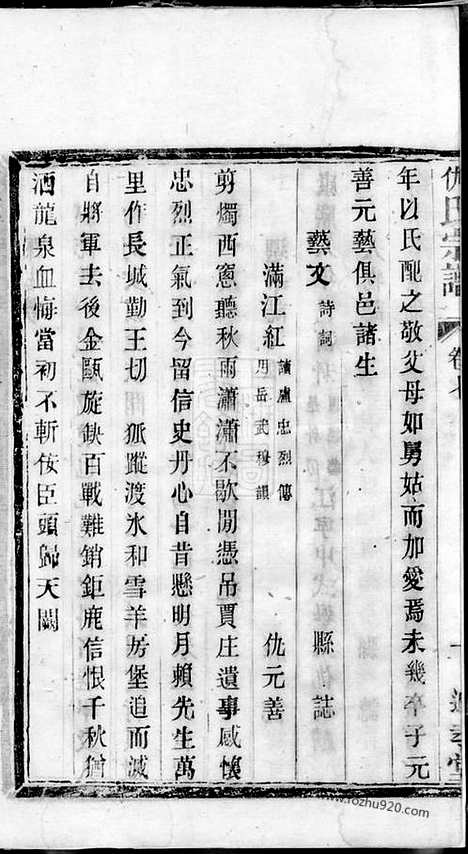 仇氏宗譜 卷七
年以氏配之敬父母如舅姑而加愛焉未幾卒子元
善元藝俱邑諸生
藝文 詩詞 縣誌
滿江紅 讀盧忠烈傳 用岳武穆韻 仇元善
剪燭西窻聽秋雨瀟瀟不歇閒憑吊賈庄遺事感懷
忠烈正氣到今留信史丹心自昔懸明月賴先生萬
里作長城勤王切 狐蹤渡氷和雪羊房堡追而滅
自將軍去後金甌旋缺百戰難銷鉅鹿信恨千秋猶
洒龍泉血悔當初不斬佞臣頭歸天闕
www.fozhu920.com